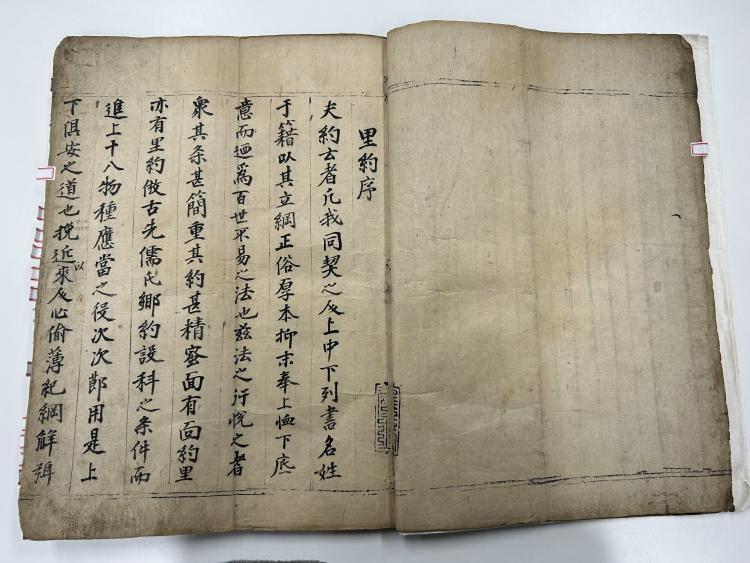 里約序
夫約玄者凡我同契之人上中下列書名姓
于籍以其立綱正俗厚本抑末奉上恤下底
意而迺爲百世不易之法也玆法之行悅之者
衆其条甚簡重其約甚精密面有面約里
亦有里約倣古先儒氏鄉約設科之条件而
進上十八物種應當之役次次郎用是上
下俱安之道也挽近以來人心偷薄紀綱解弛